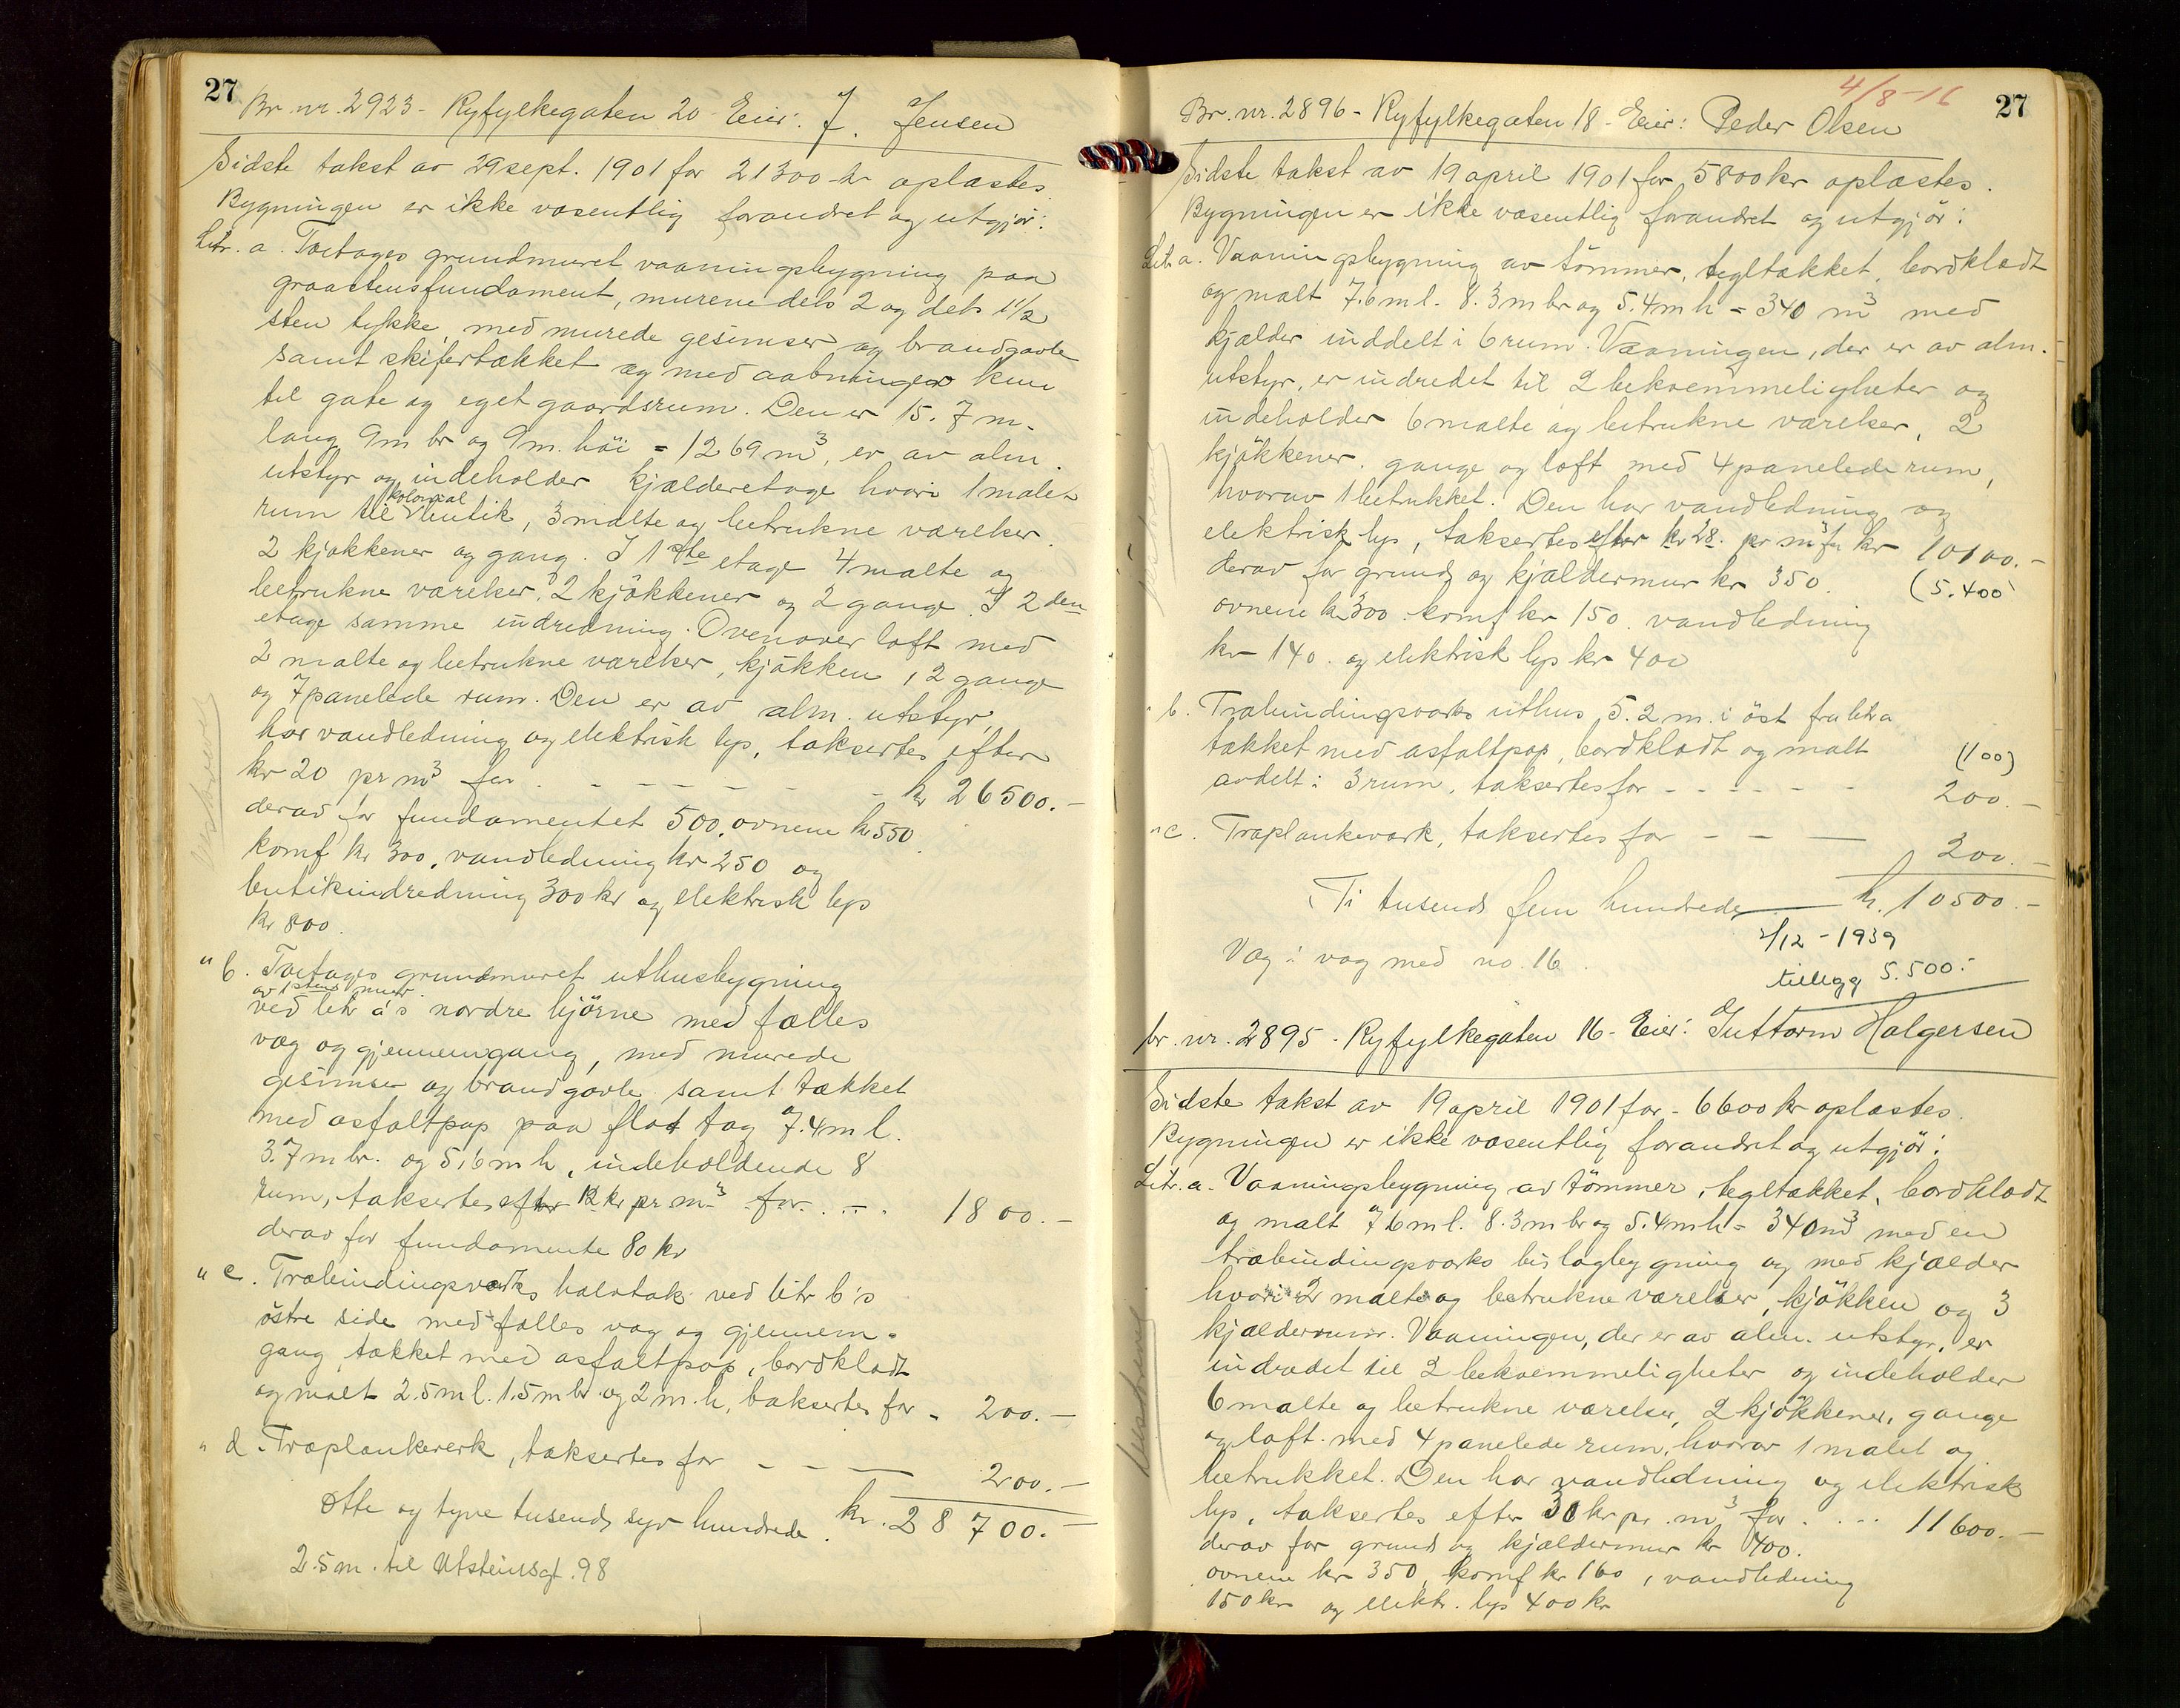 27
Br. nr. 2923 - Ryfylkegaten 20 - Eier: J. Jensen
Sidste takst av 29 sept. 1901 for 21300 kr oplæstes.
Bygningen er ikke væsentlig forandret og utgjör:
Litr. a. Toetages grundmuret vaaningsbygning paa
graastensfundament, murene dels 2 og dels 1½
sten tykke, med murede gesimser og brandgavle
samt skifertækket og med aabninger kun
til gate og eget gaardsrum. Den er 15.7 m.
lang 9m br og 9m. höi = 1269 m³, er av alm.
utstyr og indeholder kjælderetage hvori 1 malet
rum til kolonial butik, 3 malte og betrukne værelser.
2 kjøkkener og gang. I 1ste etage 4 malte og
betrukne værelser, 2 kjökkener og 2 gange. I 2den
etage samme indredning. Ovenover loft med
2 malte og betrukne værelser, kjökken, 2 gange
og 7 panelede rum. Den er av alm. utstyr,
har vandledning og elektrisk lys, taksertes efter
kr 20 pr m³ for . - - - - - - kr 26500.-
derav for fundamentet 500, ovnene kr 550.
komf kr 300, vandledning kr 250 og
butikindredning 300 kr og elektrisk lys
kr 800.
" b. Toetages grundmuret uthusbygning
av 1 stens mur
ved litr a's nordre hjörne med fælles
væg og gjennemgang, med murede
gesimser og brandgavle samt tækket
med asfaltpap paa flat tag 7.4 m l.
3.7 m br. og 5,6 m h, indeholdende 8
rum, taksertes efter 12 kr pr m³ for . . - . 1800.-
derav for fundamente 80 kr
" c. Træbindingsværks halvtak ved litr b's
östre side med fælles væg og gjennem-
gang tækket med asfaltpap, bordklædt
og malt 2.5 m l. 1.5 m br og 2 m. h, taksertes for - 200.-
" d. Træplankeverk, taksertes for - - - 200.-
Otte og tyve tusend syv hundrede. kr. 28700.-
2.5 m. til Utsteinsgt. 98
4/8-16
27
Br. nr. 2896 - Ryfylkegaten 18 - Eier: Peder Olsen
Sidste takst av 19 april 1901 for 5800 kr oplæstes.
Bygningen er ikke væsentlig forandret og utgjör:
Litr a. Vaaningsbygning av tömmer, tegltækket, bordklædt
og malt 7.6 m l. 8.3 m br og 5.4 m h = 340 m³ med
kjælder inddelt i 6 rum. Vaaningen, der er av alm.
utstyr, er indredet til 2 bekvemmeligheter og
indeholder 6 malte og betrukne værelser, 2
kjökkener, gange og loft med 4 panelede rum,
hvorav 1 betrukket. Den har vandledning og
elektrisk lys, taksertes efter kr 28. pr m³ for kr 10100.-
derav for grund og kjældermur kr 350. (5.400)
ovnene kr 300 komf kr 150. vandledning
kr 140. og elektrisk lys kr 400
" b. Træbindingsværks uthus 5.2 m. i öst fra litr a
tækket med asfaltpap, bordklædt og malt (100)
avdelt i 3 rum, taksertes for - - - - - - 200.-
" c. Træplankeværk, taksertes for - - - 200.-
Ti tusend fem hundrede kr. 10500.-
2/12 - 1939
Væg i væg med no. 16.
tillegg 5.500.-
br. nr. 2895 - Ryfylkegaten 16 - Eier: Guttorm Halgersen
Sidste takst av 19 april 1901 for - 6600 kr oplæstes.
Bygningen er ikke væsentlig forandret og utgjör:
Litr. a. Vaaningsbygning av tömmer, tegltækket, bordklædt
og malt 7.6 m l. 8.3 m br og 5.4 m h = 340 m³ med en
træbindingsværks bislagbygning og med kjælder
hvori 2 malte og betrukne værelser, kjökken og 3
kjælderrum. Vaaningen, der er av alm. utstyr, er
indredet til 2 bekvemmeligheter og indeholder
6 malte og betrukne værelser, 2 kjøkkener, gange
og loft med 4 panelede rum, hvorav 1 malet og
betrukket. Den har vandledning og elektrisk
lys, taksertes efter 30 kr pr. m³ for . . . . 11600.-
derav for grund og kjældermur kr 400.
ovnene kr 350, komf kr 160, vandledning
150 kr og elektr. lys 400 kr